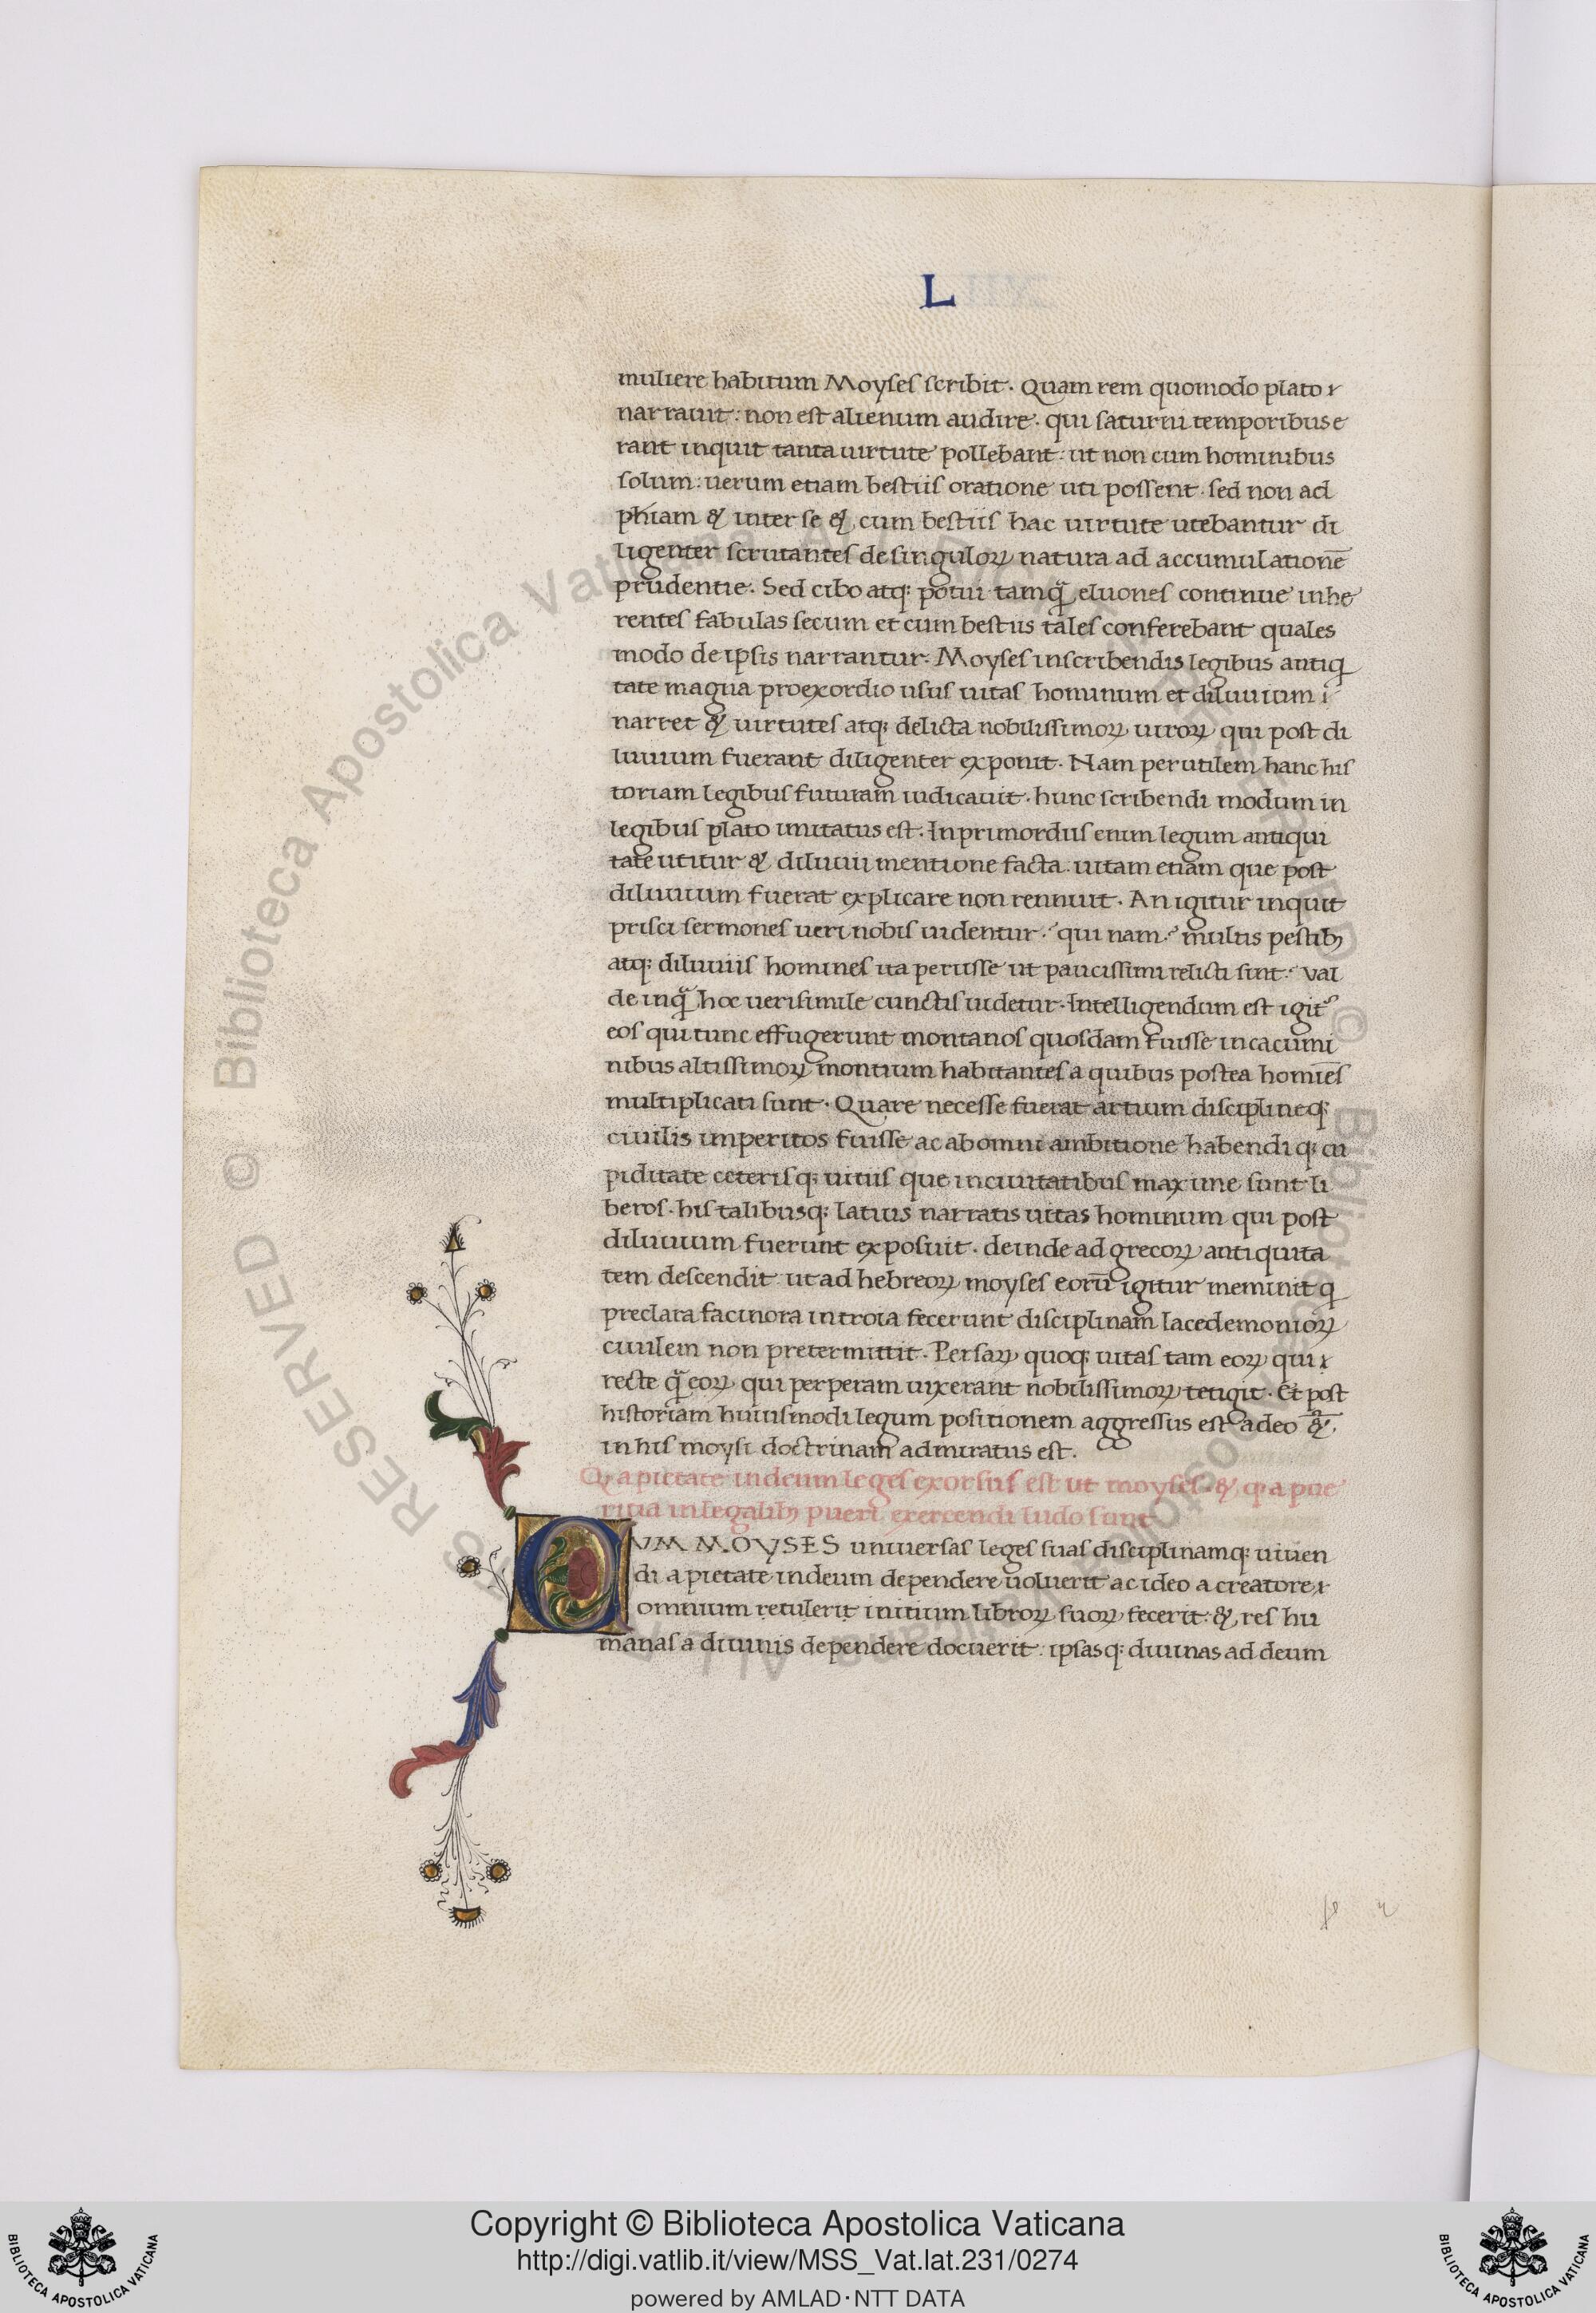 L
muliere habitum Moyses scribit. Quam rem quomodo plato &
narrauit: non est alienum audire. qui saturni temporibus e
rant inquit tanta uirtute pollebant: ut non cum hominibus
solum: uerum etiam bestiis oratione uti possent. sed non ad
phiam & inter se & cum bestiis hac uirtute utebantur di
ligenter scrutantes de singuloꝝ natura ad accumulationē
prudentie. Sed cibo atqꝫ potui tamq̃ eluones continue inhe
rentes fabulas secum et cum bestiis tales conferebant quales
modo de ipsis narrantur. Moyses in scribendis legibus antiq
tate magna pro exordio usus uitas hominum et diluuium i
narret & uirtutes atqꝫ delicta nobilissimoꝝ uiroꝝ qui post di
luuium fuerant diligenter exponit. Nam perutilem hanc his
toriam legibus futuram iudicauit. hunc scribendi modum in
legibus plato imitatus est. In primordiis enim legum antiqui
tate utitur & diluuii mentione facta. uitam etiam que post
diluuium fuerat explicare non rennuit. An igitur inquit
prisci sermones ueri nobis uidentur? qui nam? multis pestibꝫ
atqꝫ diluuiis homines ita periisse ut paucissimi relicti sint? Val
de inq̃ hoc uerisimile cunctis uidetur. Intelligendum est igit᷒
eos qui tunc effugerunt montanos quosdam fuisse in cacumi
nibus altissimoꝝ montium habitantes a quibus postea homīes
multiplicati sunt. Quare necesse fuerat artium disciplineqꝫ
ciuilis imperitos fuisse ac ab omni ambitione habendiqꝫ cu
piditate ceterisqꝫ uitiis que in ciuitatibus maxime sunt li
beros. his talibusqꝫ latius narratis uitas hominum qui post
diluuium fuerunt exposuit. deinde ad grecoꝝ antiquita
tem descendit ut ad hebreoꝝ moyses eorū igitur meminit q
preclara facinora in troia fecerunt disciplinam lacedemonioꝝ
ciuilem non pretermittit. Persaꝝ quoqꝫ uitas tam eoꝝ qui &
recte q̃ eoꝝ qui perperam uixerant nobilissimoꝝ tetigit. Et post
historiam huiusmodi legum positionem aggressus est adeo &
in his moysi doctrinam admiratus est.
Q a pietate in deum leges exorsus est ut moyses. & q a pue
ritia in legalibꝫ pueri exercendi ludo sunt
CVM MOYSES uniuersas leges suas disciplinamqꝫ uiuen
di a pietate in deum dependere uoluerit ac ideo a creatore &
omnium retulerit initium libroꝝ suoꝝ fecerit. & res hu
manas a diuinis dependere docuerit: ipsasqꝫ diuinas ad deum
Copyright © Biblioteca Apostolica Vaticana
http://digi.vatlib.it/view/MSS_Vat.lat.231/0274
powered by AMLAD·NTT DATA